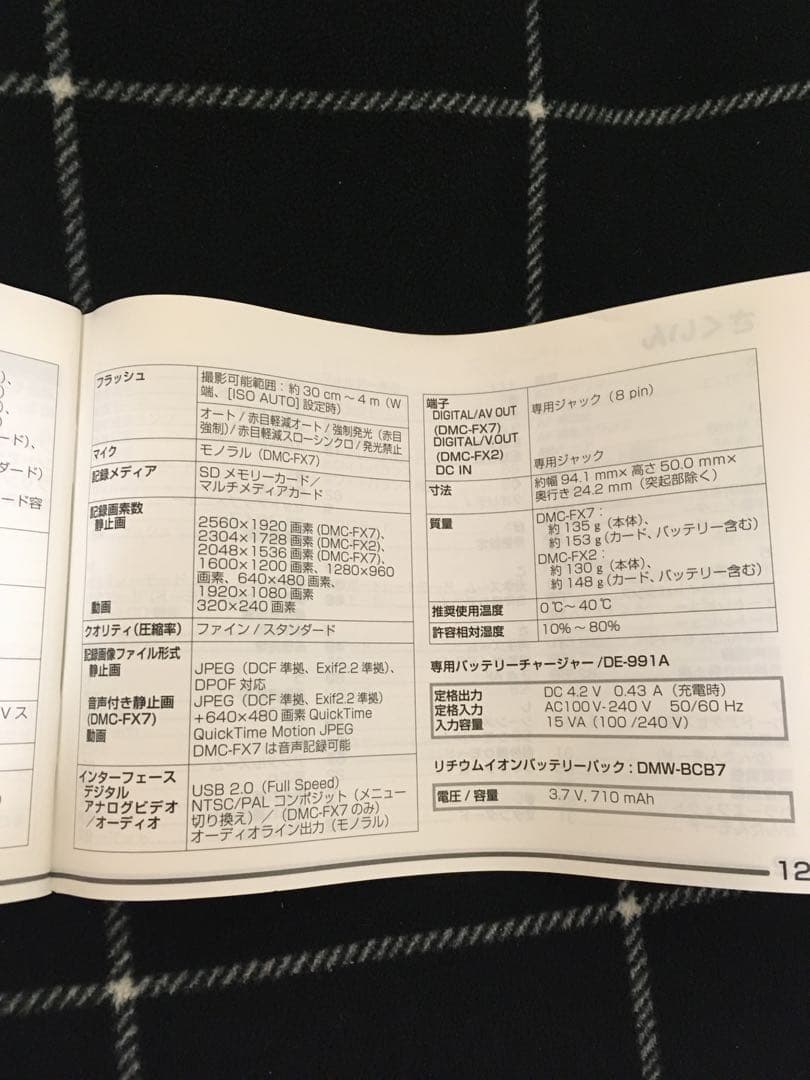 ード)、
ダード)
ード容
Vス
フラッシュ
撮影可能範囲：約30 cm～4 m（W
端、[ISO AUTO] 設定時）
オート / 赤目軽減オート / 強制発光（赤目
強制）/ 赤目軽減スローシンクロ / 発光禁止
マイク
モノラル（DMC-FX7）
記録メディア
SD メモリーカード／
マルチメディアカード
記録画素数
静止画
2560×1920 画素 (DMC-FX7)、
2304×1728 画素 (DMC-FX2)、
2048×1536 画素 (DMC-FX7)、
1600×1200 画素、1280×960
画素、640×480 画素、
1920×1080 画素
動画
320×240 画素
クオリティ（圧縮率）
ファイン / スタンダード
記録画像ファイル形式
静止画
JPEG（DCF 準拠、Exif2.2 準拠）、
DPOF 対応
音声付き静止画
(DMC-FX7)
JPEG（DCF 準拠、Exif2.2 準拠）
+640×480 画素 QuickTime
動画
QuickTime Motion JPEG
DMC-FX7 は音声記録可能
インターフェース
デジタル
USB 2.0（Full Speed）
アナログビデオ
／オーディオ
NTSC/PAL コンポジット（メニュー
切り換え）／（DMC-FX7 のみ）
オーディオライン出力（モノラル）
端子
DIGITAL/AV OUT
(DMC-FX7)
DIGITAL/V.OUT
(DMC-FX2)
専用ジャック（8 pin）
DC IN
専用ジャック
寸法
約幅 94.1 mm× 高さ 50.0 mm×
奥行き 24.2 mm（突起部除く）
質量
DMC-FX7：
約 135 g（本体）、
約 153 g（カード、バッテリー含む）
DMC-FX2：
約 130 g（本体）、
約 148 g（カード、バッテリー含む）
推奨使用温度
0 ℃～ 40 ℃
許容相対湿度
10%～ 80%
専用バッテリーチャージャー /DE-991A
定格出力
DC 4.2 V 0.43 A（充電時）
定格入力
AC100 V-240 V 50/60 Hz
入力容量
15 VA（100 /240 V）
リチウムイオンバッテリーパック：DMW-BCB7
電圧 / 容量
3.7 V, 710 mAh
12